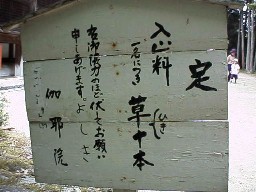 定
入山料
一名につき 草十本
ひき
右御協力のほど伏してお願い
申しあげます。
伽耶院